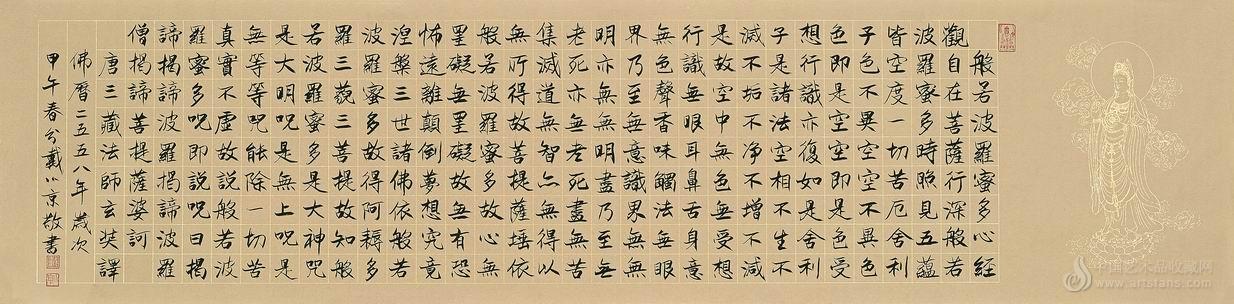 般若波羅蜜多心經
觀自在菩薩行深般若
波羅蜜多時照見五蘊
皆空度一切苦厄舍利
子色不異空空不異色
色即是空空即是色受
想行識亦復如是舍利
子是諸法空相不生不
滅不垢不净不增不減
是故空中無色無受想
行識無眼耳鼻舌身意
無色聲香味觸法無眼
界乃至無意識界無無
明亦無無明盡乃至無
老死亦無老死盡無苦
集滅道無智亦無得以
無所得故菩提薩埵依
般若波羅蜜多故心無
罣礙無罣礙故無有恐
怖遠離顛倒夢想究竟
涅槃三世諸佛依般若
波羅蜜多故得阿耨多
羅三藐三菩提故知般
若波羅蜜多是大神咒
是大明呪是無上呪是
無等等呪能除一切苦
真實不虛故說般若波
羅蜜多呪即說呪曰揭
諦揭諦波羅揭諦波羅
僧揭諦菩提薩婆訶
唐三藏法師玄奘譯
佛曆二五五八年歲次
甲午春分戴小京敬書
中国艺术品收藏网
www.artsfans.com